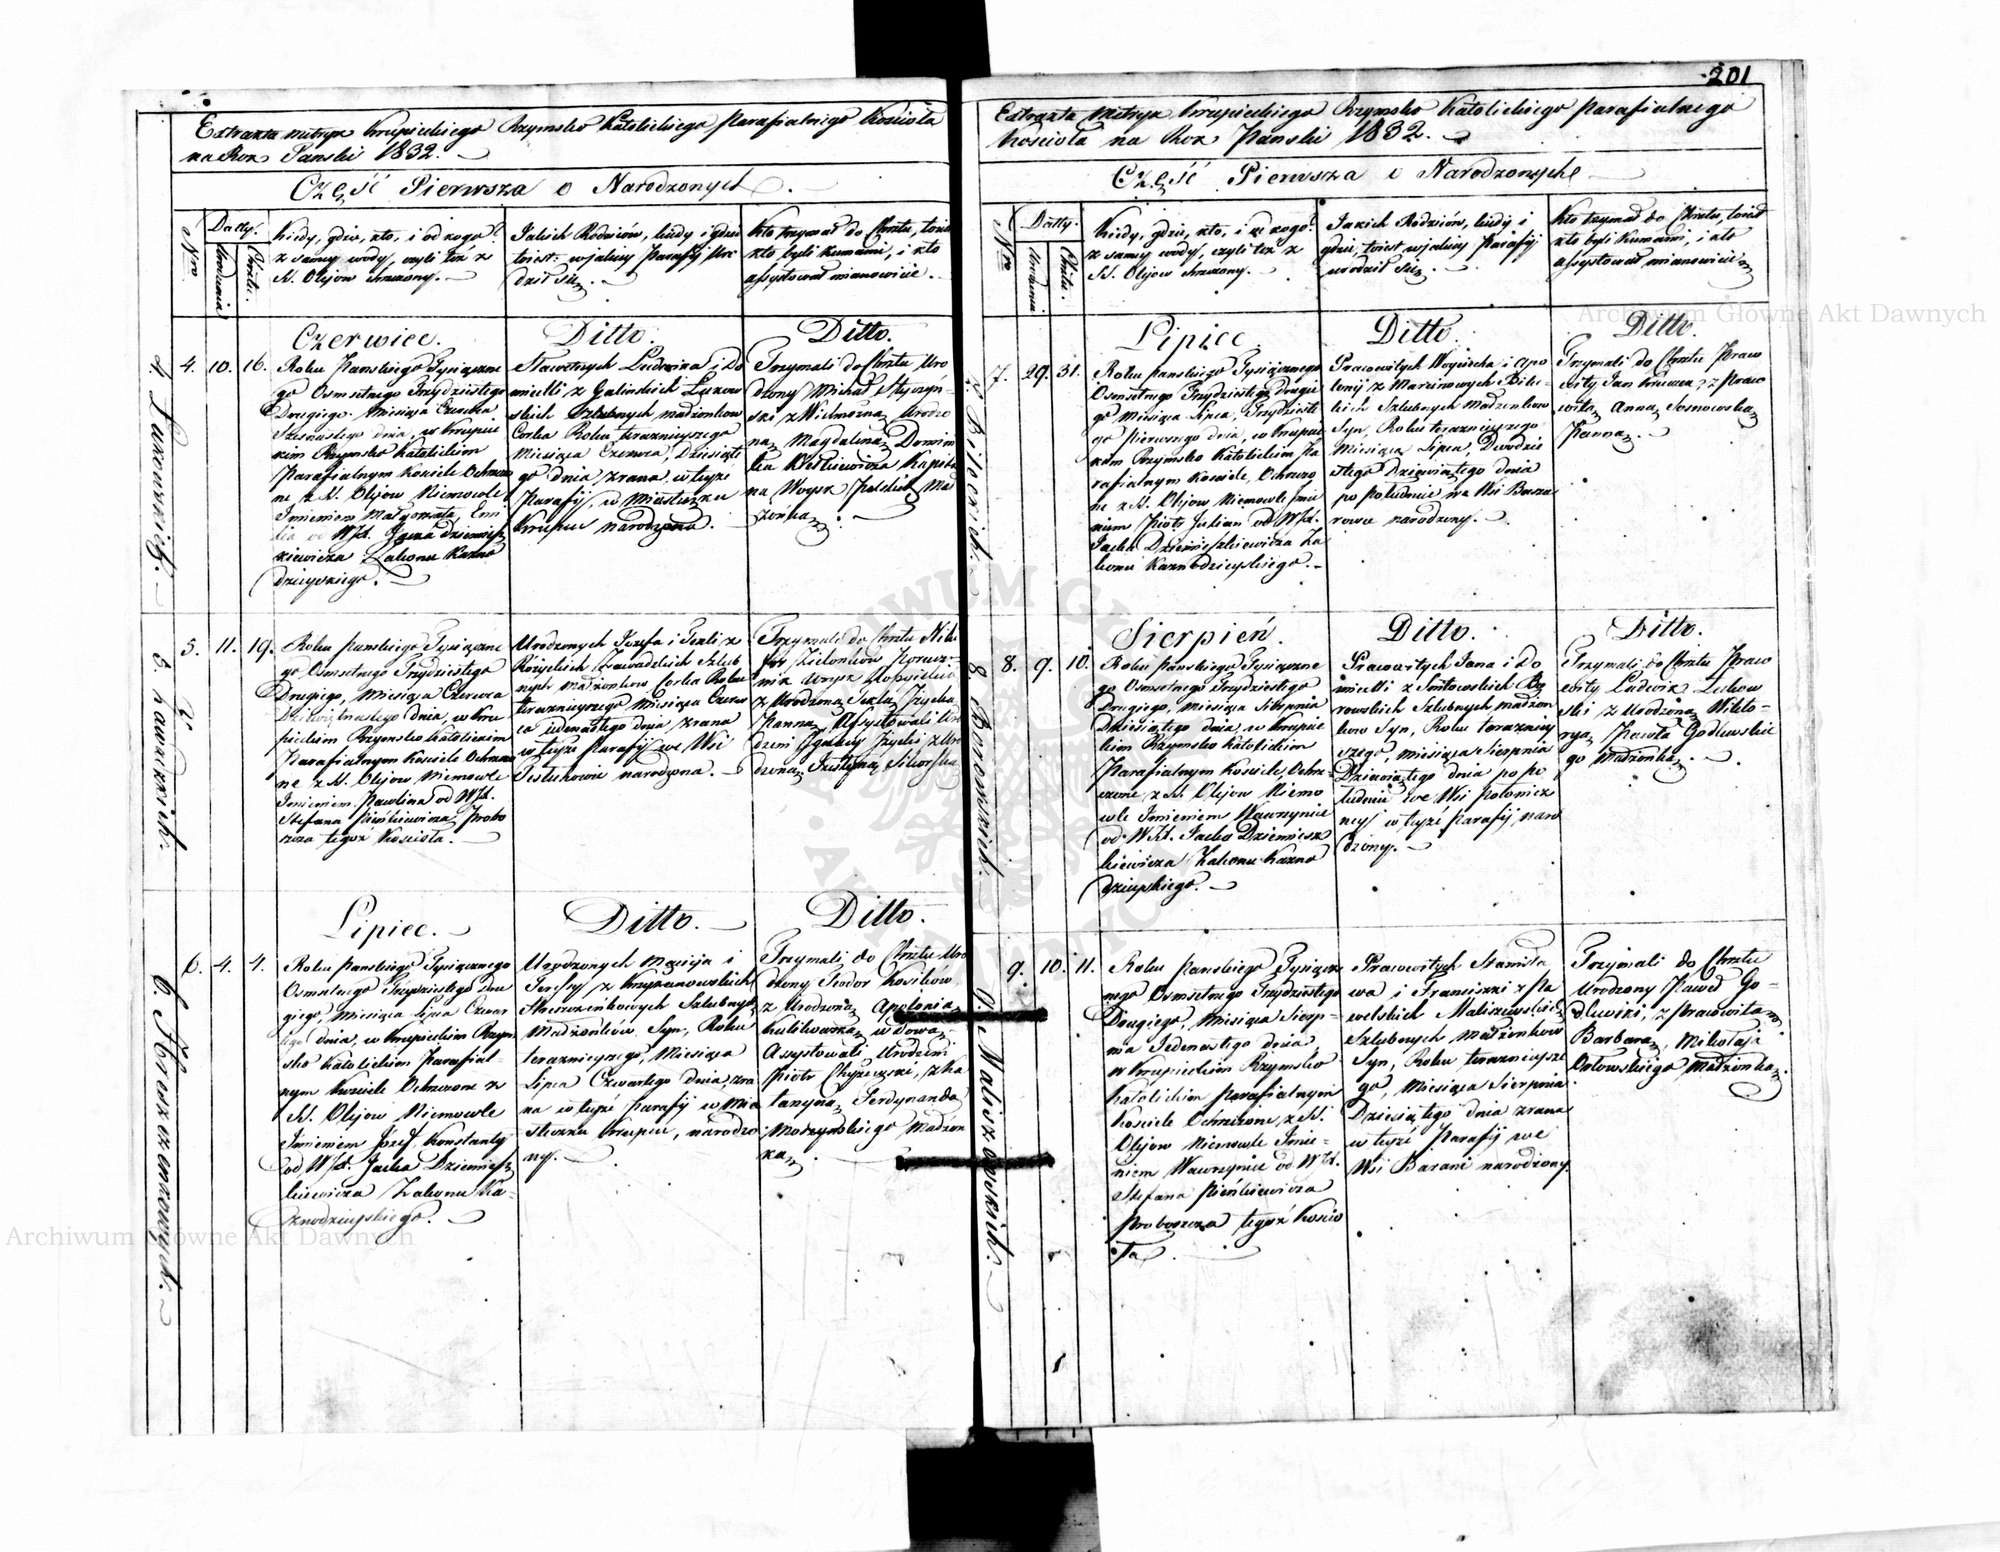 Extrakta metryk Krupieckiego Rzymsko Katolickiego parafialnego Kościoła
na Rok Pański 1832.
Część Pierwsza o Narodzonych.
Nro
Datty.
Urodzenia
Chrztu.
Kiedy, gdzie, kto, i od kogo?
z samey wody, czyli też z
SS. Olejow chrzczony.
Jakich Rodziców, kiedy i gdzie
toiest: w jakiey Parafij uro
dził się.
Kto trzymał do Chrztu, toiest
kto byli kumami, i kto
assystował mianowicie.
4. Łukowskich.
Czerwiec.
Ditto.
Ditto.
4. 10. 16.
Roku Pańskiego Tysiączne
go Osmsetnego Trzydziestego
Drugiego. Miesiąca Czerwca
Szesnastego dnia, w Krupie
ckim Rzymsko Katolickim
Parafialnym Kosciele Ochrzczo
ne z SS. Olijow Niemowle
Imieniem Małgorzata, Emi
lia od WJX. Jacka Dziemiesz
kiewicza Zakonu Kazno
dzieyskiego.
Sławetnych Ludwika i Do
micelli z Galinskich Łukow
skich Szlubnych małżonkow
Corka Roku teraznieyszego
Miesiąca Czerwca, Dziesiąte
go dnia zrana, w teyże
Parafij, w Miasteczku
Krupce narodzona.
Trzymali do Chrztu Uro
dzony Michał Styczyn-
ski z Wielmożną Urodzo
ną Magdaleną Domini
ka Wesłuiewicza Kapita
na Woysk Polskich Mał
żonką.
5. Zawadzkich.
5. 11. 19.
Roku Pańskiego Tysiączne
go Osmsetnego Trzydziestego
Drugiego, Miesiąca Czerwca
Dziewiętnastego dnia, w Kru
pieckim Rzymsko Katolickim
Parafialnym Kosciele Ochrzczo
ne z SS. Olijow Niemowle
Imieniem Paulina od WJX.
Stefana Pieńkiewicza Probo
szcza tegoż Kościoła.
Urodzonych Jozefa i Tekli z
Różyckich Zawadzkich Szlub
nych Małżonkow Corka Roku
teraznieyszego Miesiąca Czerw
ca jedenastego dnia zrana
w teyże Parafij we Wsi
narodzona.
Trzymali do Chrztu
Zielonkow Porucz-
nik Woysk Rossyiskich
z Urodzoną Teklą Życką
Panną Assystowali Uro
dzeni Ignacy Życki z Uro
dzoną Justyną Sikorską
6. Moszczenkowych.
Lipiec.
Ditto.
Ditto.
6. 4. 4.
Roku Pańskiego Tysiącznego
Osmsetnego Trzydziestego Dru
giego, Miesiąca Lipca Czwar
tego dnia, w Krupieckim Rzym
sko Katolickim Parafial-
nym Kosciele Ochrzczone z
SS. Olijow Niemowle
Imieniem Jozef Konstanty
od WJX. Jacka Dziemiesz
kiewicza Zakonu Ka-
znodzieyskiego.
Urodzonych Macieja i
Teresy z Krzyżanowskich
Moszczenkowych Szlubnych
Małżonków Syn, Roku
teraznieyszego, Miesiąca
Lipca Czwartego dnia zra
na w teyże Parafij w Mia
steczku Krupce, narodzo
ny.
Trzymali do Chrztu Uro
dzony Teodor Kosikow
z Urodzoną Apolonią
Kulikowską wdową,
Assystowali Urodzeni
Piotr Chyżewski, z Ka
tarzyną Ferdynanda
Modzynskiego Małżon
ką.
201
Extrakta Metryk Krupieckiego Rzymsko Katolickiego Parafialnego
Kościoła na Rok Pański 1832.
Część Pierwsza o Narodzonych
Nro
Datty.
Urodzenia
Chrztu.
Kiedy, gdzie, kto, i od kogo?
z samey wody, czyli też z
SS. Olejow chrzczony.
Jakich Rodziców, kiedy i
gdzie, toiest w jakiey Parafij
urodził się.
Kto trzymał do Chrztu, toiest
kto byli Kumami, i kto
assystował mianowicie
7. Bileckich.
Lipiec.
Ditto.
Ditto.
7. 29. 31.
Roku Pańskiego Tysiącznego
Osmsetnego Trzydziestego Drugie
go Miesiąca Lipca, Trzydzieste
go pierwszego dnia, w Krupiec
kim Rzymsko Katolickim Pa
rafialnym Kosciele, Ochrzczo
ne z SS. Olijow Niemowle Imie
niem Piotr Julian od WJX.
Jacka Dziemieszkiewicza Za
konu Kaznodzieyskiego.
Prawowitych Woyciecha i Apo
lonij z Marcinowych Bile-
ckich Szlubnych Małżonkow
Syn, Roku teraznieyszego
Miesiąca Lipca, Dwudzie
stego Dziewiątego dnia
po południu we Wsi
narodzony.
Trzymali do Chrztu Prawo
wity Jan z Prawo
witą Anną Sosnowską
Panną.
8. Borowskich.
Sierpień.
Ditto.
Ditto.
8. 9. 10.
Roku Pańskiego Tysiączne
go Osmsetnego Trzydziestego
Drugiego, Miesiąca Sierpnia
Dziesiątego dnia, w Krupie
ckim Rzymsko Katolickim
Parafialnym Kosciele, Ochrz
czone z SS. Olejow Niemo
wle Imieniem Wawrzyniec
od WJX. Jacka Dziemiesz
kiewicza Zakonu Kazno
dzieyskiego.
Prawowitych Jana i Do
micelli z Sentowskich Bo
rowskich Szlubnych małżon
kow Syn, Roku terazniey
szego, Miesiąca Sierpnia
Dziewiątego dnia po po
łudniu we Wsi
w teyże Parafij, naro
dzony.
Trzymali do Chrztu Prawo
wity Ludwik Łukow
ski z Urodzoną Wikto-
ryą Pawła Godlewskie
go Małżonką.
9. Maliszewskich.
9. 10. 11.
Roku Pańskiego Tysiącz
nego Osmsetnego Trzydziestego
Drugiego, Miesiąca Sierp-
nia Jedenastego dnia,
w Krupieckim Rzymsko
Katolickim Parafialnym
Kosciele Ochrzczone, z SS.
Olijow Niemowle Imie-
niem Wawrzyniec od WJX.
Stefana Pieńkiewicza
Proboszcza tegoż Koscio
ła.
Prawowitych Stanisła
wa i Franciszki z Pa
welskich Maliszewskich
Szlubnych Małżonkow
Syn, Roku teraznieysze
go, Miesiąca Sierpnia
Dziesiątego dnia zrana
w teyże Parafij we
Wsi Barani narodzony.
Trzymali do Chrztu
Urodzony Paweł Go-
dlewski, z Prawowitą
Barbarą, Mikołaja
Orłowskiego Małżonką.
Archiwum Główne Akt Dawnych
Archiwum Główne Akt Dawnych